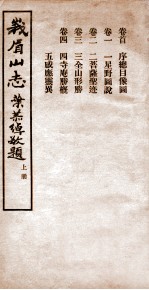 卷首 序總目像圖
卷一 一星野圖說
卷二 二菩薩聖迹
卷三 三全山形勝
卷四 四寺庵勝概
五感應靈異
峩眉山志 葉恭綽敬題 上冊